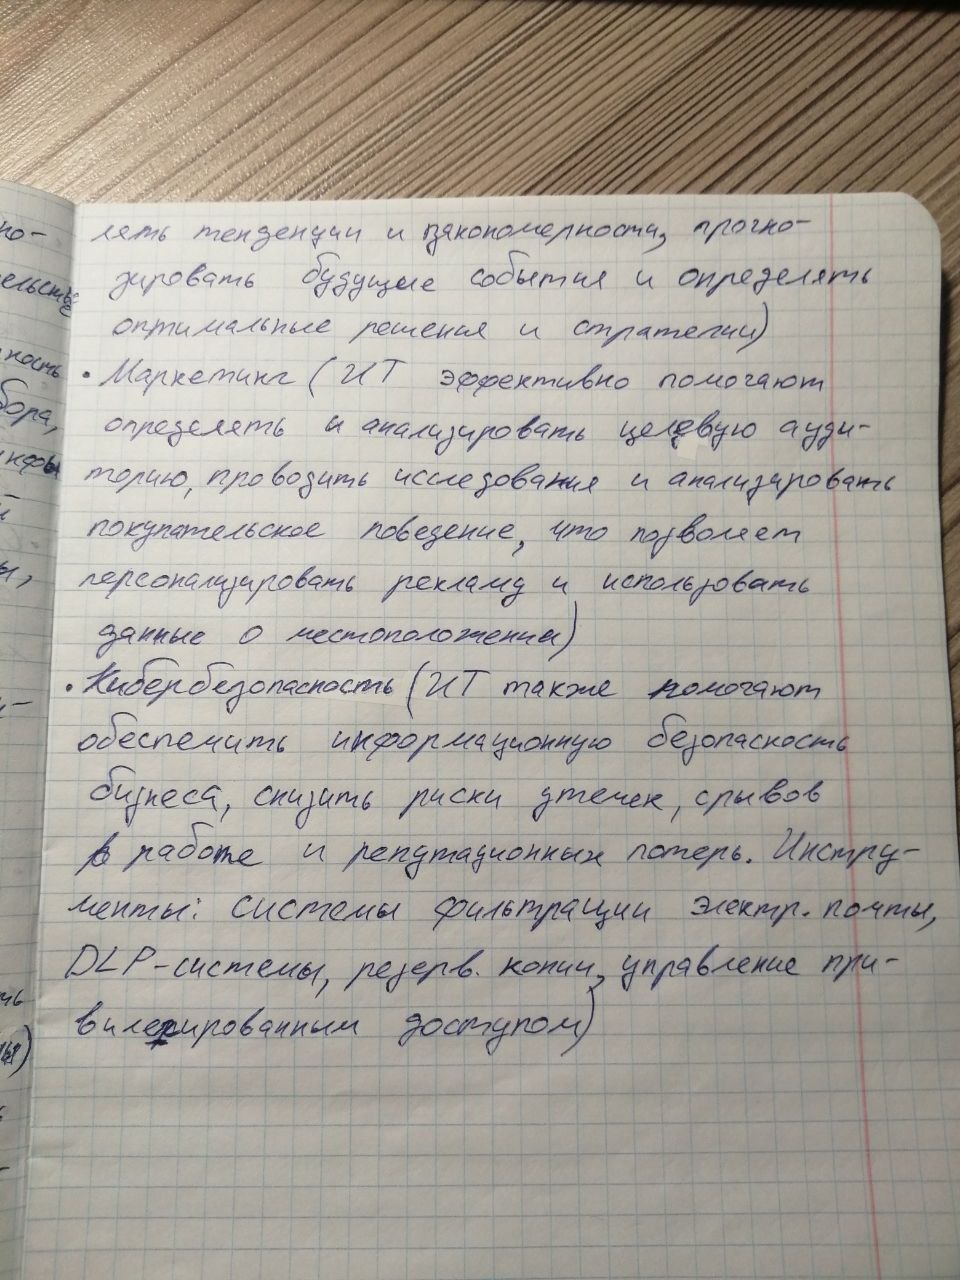 но-
лять тенденции и закономерности, прогно-
зировать будущие события и определять
оптимальные решения и стратегии)
• Маркетинг (ИТ эффективно помогают
определять и анализировать целевую ауди-
торию, проводить исследования и анализировать
покупательское поведение, что позволяет
персонализировать рекламу и использовать
данные о местоположении)
• Кибербезопасность (ИТ также помогают
обеспечить информационную безопасность
бизнеса, снизить риски утечек, срывов
в работе и репутационных потерь. Инстру-
менты: системы фильтрации электр. почты,
DLP-системы, резерв. копии, управление при-
вилегированным доступом)